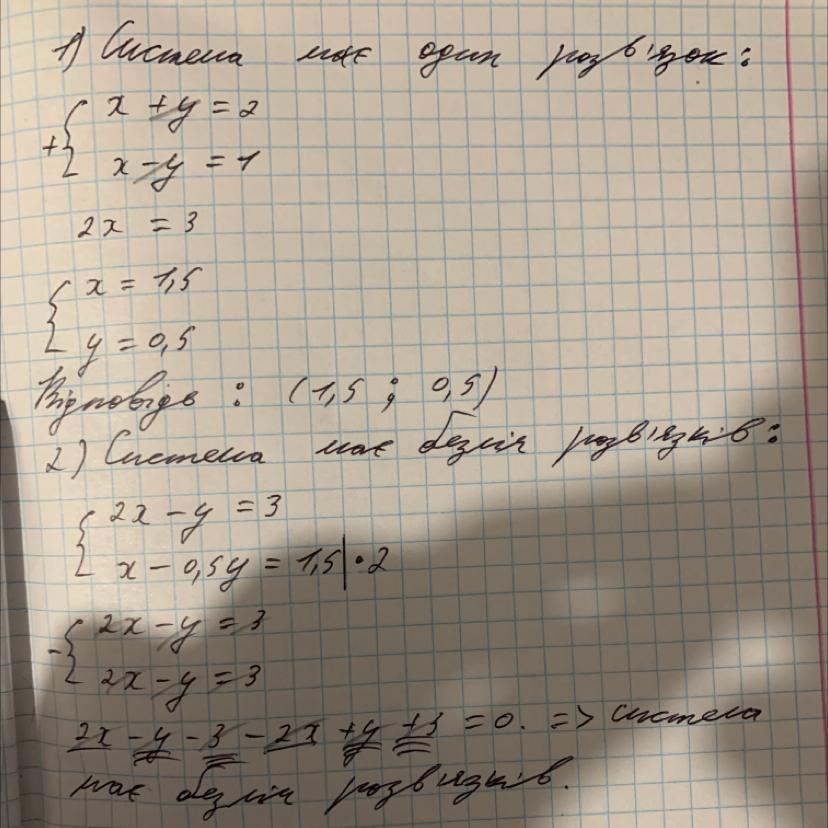 1) Система має один розв'язок:
+{ x + y = 2
x - y = 1
2x = 3
{ x = 1,5
y = 0,5
Відповідь : (1,5 ; 0,5)
2) Система має безліч розв'язків:
{ 2x - y = 3
x - 0,5y = 1,5 | • 2
-{ 2x - y = 3
2x - y = 3
2x - y - 3 - 2x + y + 3 = 0. => система
має безліч розв'язків.